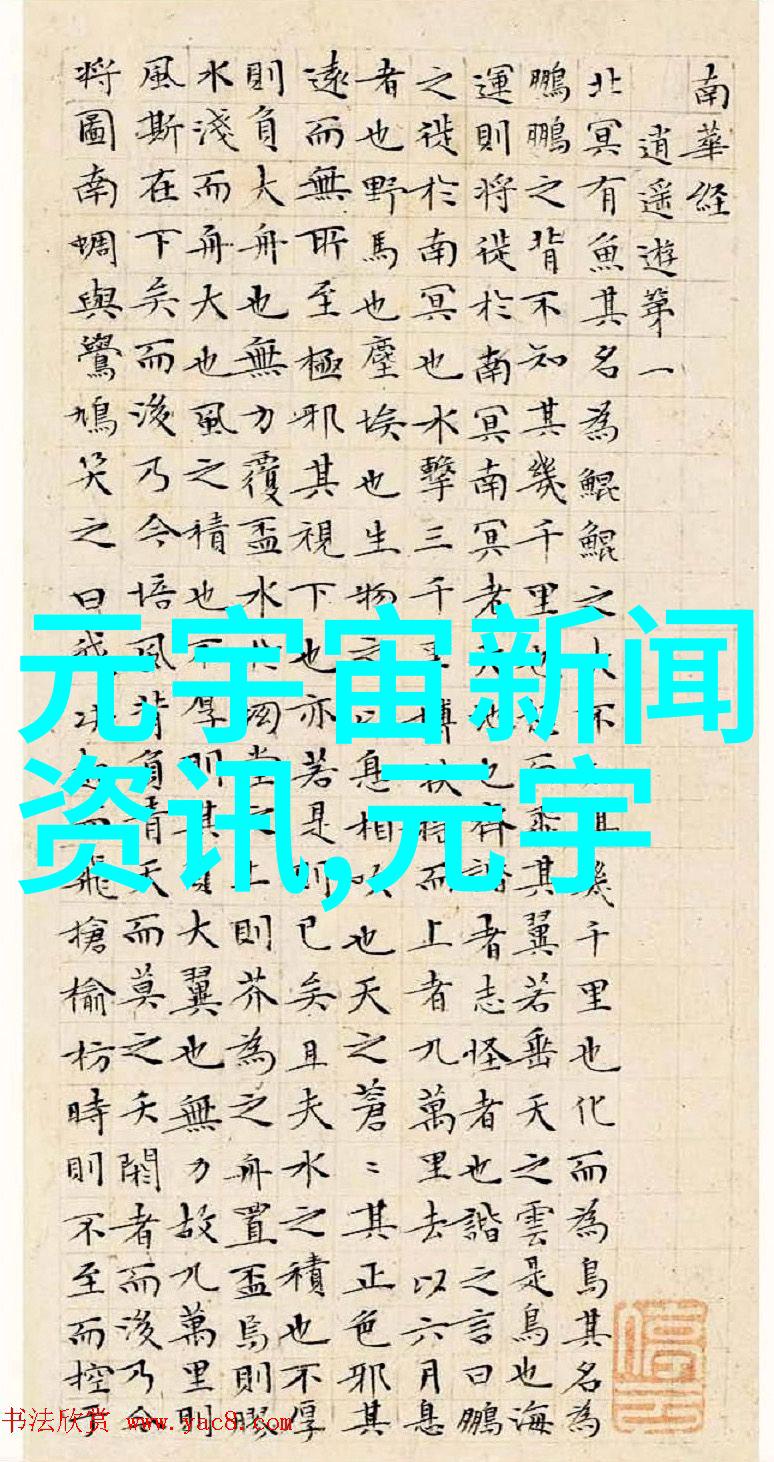 南華経
逍遥遊第一
北冥有魚其名為鯤鯤之大不其幾千里也化而為鳥其名為
鵬鵬之背不知其幾千里也怒而飛其翼若垂天之雲是鳥也海
運則将徙於南冥南冥者天池也齊諧者志怪者也諧之言曰鵬
之徙於南冥也水擊三千里摶扶揺而上者九萬里去以六月息
者也野馬也塵埃也生物之以息相吹也天之蒼〻其正色邪其
遠而無所至極邪其視下也亦若是則已矣且夫水之積也不厚
則負大舟也無力覆盃水於坳堂之上則芥為之舟置盃焉則膠
水淺而舟大也風之積也不厚則其負大翼也無力故九萬里則
風斯在下矣而後乃今培風背負青天而莫之夭閼者而後乃今
将圖南蜩與鷽鳩笑之曰我决起而飛搶榆枋時則不至而控于
元宇宙新闻
资讯,元宇
书法欣赏 www.yac8.com